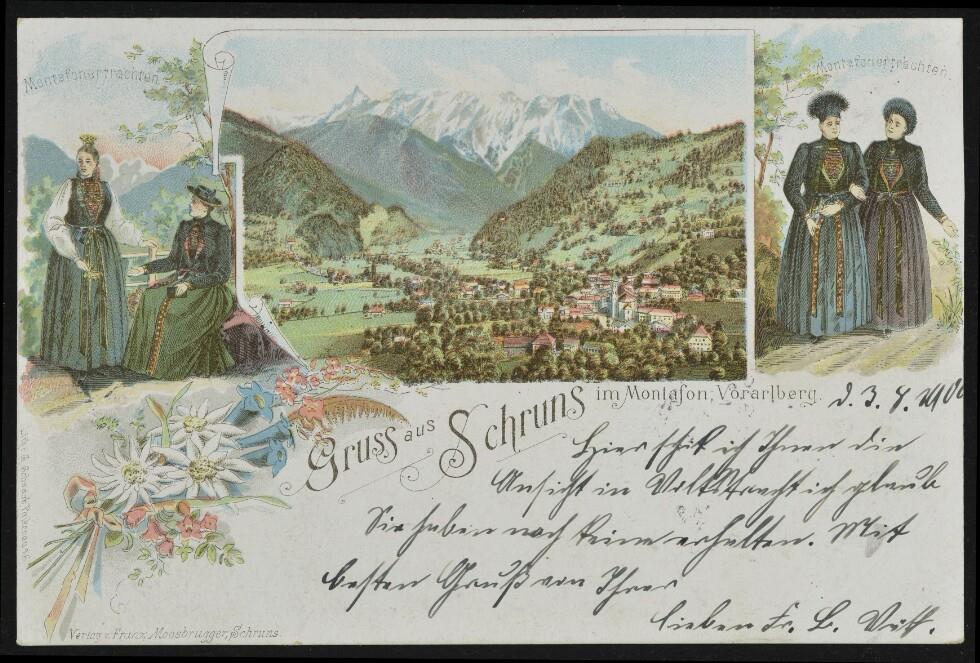 Montafonertrachten
Montafonertrachten.
Gruss aus Schruns im Montafon, Vorarlberg.
d. 3. 7. 1900
Hier schik ich Ihnen die
Ansicht in Volkstracht ich glaub
Sie haben noch keine erhalten. Mit
besten Gruß von Ihrer
lieben Fr. B.
Verlag v. Franz Moosbrugger, Schruns.